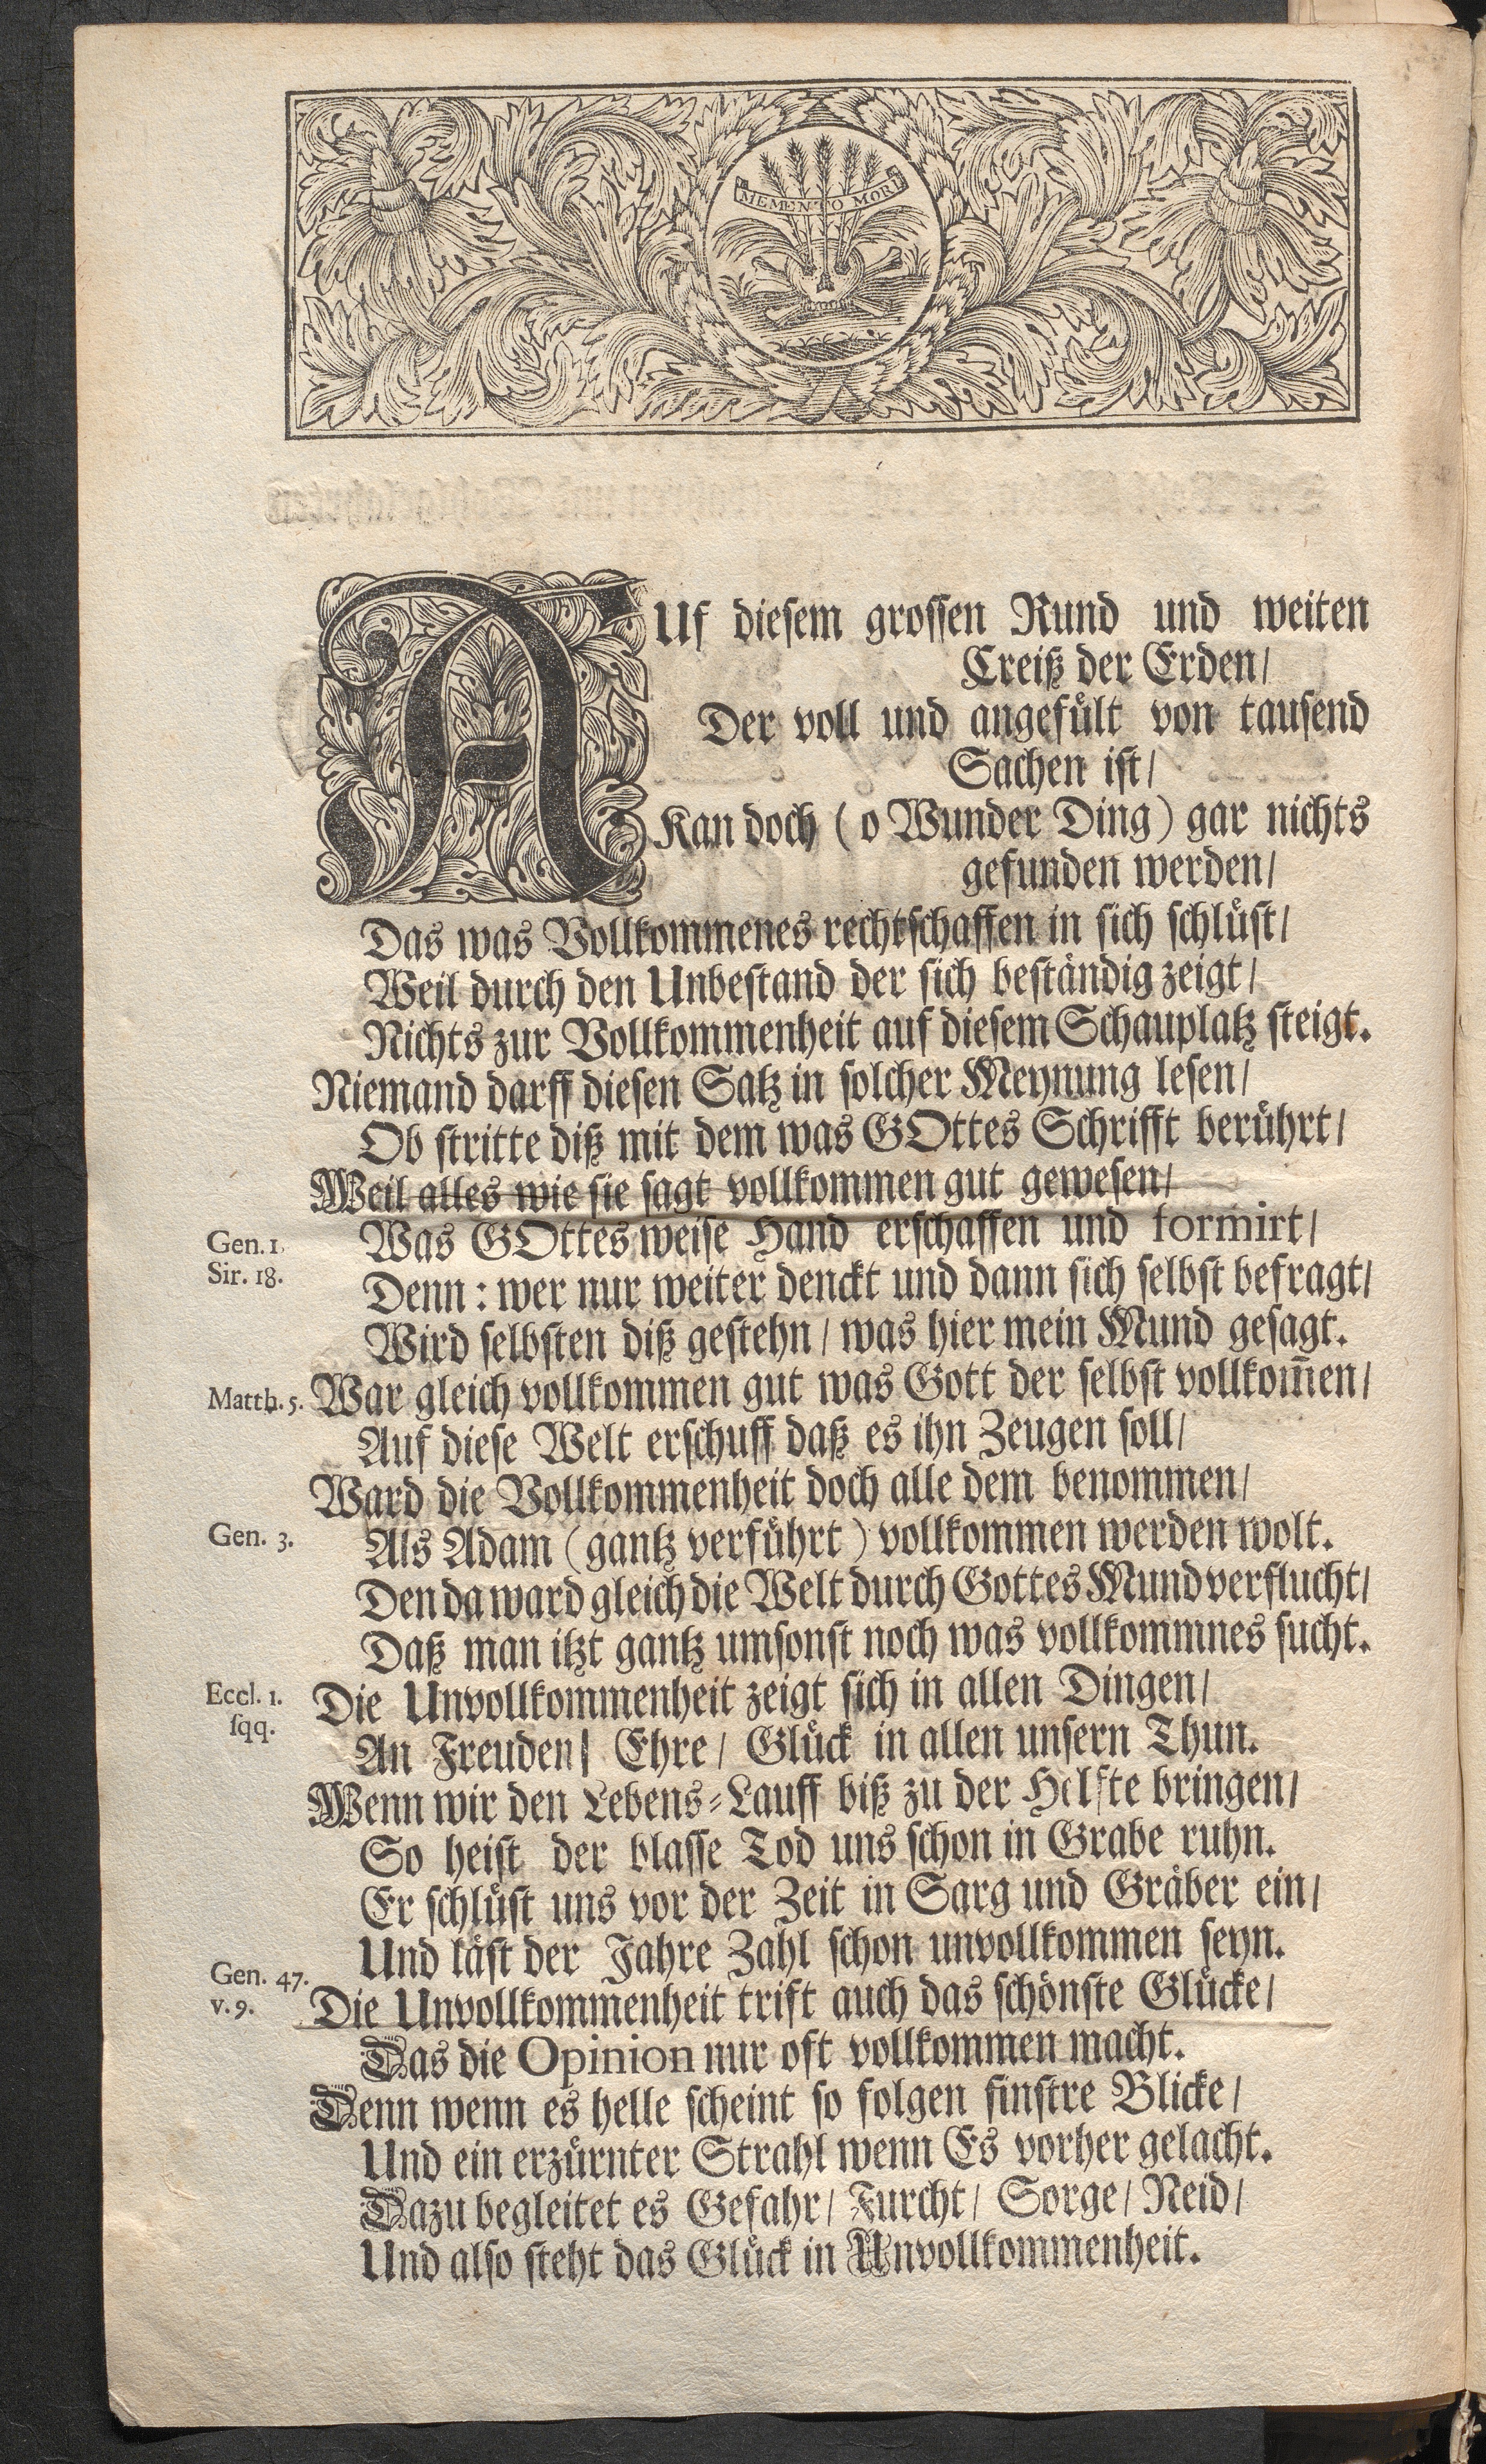 MEMENTO MORI
AUf diesem grossen Rund und weiten
Creiß der Erden/
Der voll und angefült von tausend
Sachen ist/
Kan doch (o Wunder Ding) gar nichts
gefunden werden/
Das was Vollkommenes rechtschaffen in sich schlüst/
Weil durch den Unbestand der sich beständig zeigt/
Nichts zur Vollkommenheit auf diesem Schauplatz steigt.
Niemand darff diesen Satz in solcher Meynung lesen/
Ob stritte diß mit dem was GOttes Schrifft berührt/
Weil alles wie sie sagt vollkommen gut gewesen/
Gen. 1. Was GOttes weise Hand erschaffen und formirt/
Sir. 18. Denn: wer nur weiter denckt und dann sich selbst befragt/
Wird selbsten diß gestehn/ was hier mein Mund gesagt.
Matth. 5. War gleich vollkommen gut was Gott der selbst vollkom̃en/
Auf diese Welt erschuff daß es ihn Zeugen soll/
Ward die Vollkommenheit doch alle dem benommen/
Gen. 3. Als Adam (gantz verführt) vollkommen werden wolt.
Den da ward gleich die Welt durch Gottes Mund verflucht/
Daß man itzt gantz umsonst noch was vollkommnes sucht.
Eccl. 1. Die Unvollkommenheit zeigt sich in allen Dingen/
sqq. An Freuden/ Ehre/ Glück in allen unsern Thun.
Wenn wir den Lebens-Lauff biß zu der Helfte bringen/
So heist der blasse Tod uns schon in Grabe ruhn.
Er schlüst uns vor der Zeit in Sarg und Gräber ein/
Und läst der Jahre Zahl schon unvollkommen seyn.
Gen. 47.
v. 9. Die Unvollkommenheit trift auch das schönste Glücke/
Das die Opinion nur oft vollkommen macht.
Denn wenn es helle scheint so folgen finstre Blicke/
Und ein erzürnter Strahl wenn Es vorher gelacht.
Dazu begleitet es Gefahr/ Furcht/ Sorge/ Neid/
Und also steht das Glück in Unvollkommenheit.